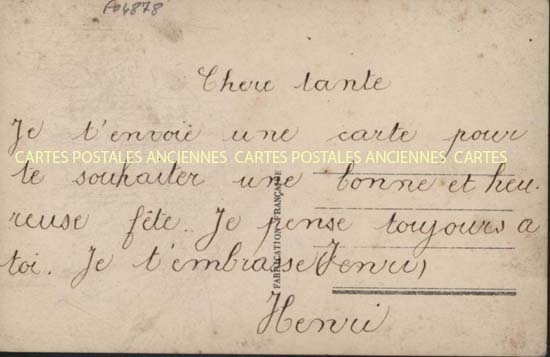 Fo4878
Chere tante
Je t'envoie une carte pour
CARTES POSTALES ANCIENNES CARTES POSTALES ANCIENNES CARTES
te souhaiter une bonne et heu-
reuse fête. Je pense toujours a
toi. Je t'embrasse (Henri)
Henri
FABRICATION FRANÇAISE